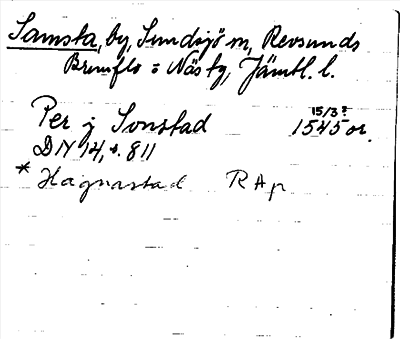 Samsta, by, Sundsjö sn, Revsunds
Brunflo o Näs tg, Jämtl. l.
15/3 ?
Per j Sonstad 1545 or.
DN 14, s. 811
* Hagnastad RAp